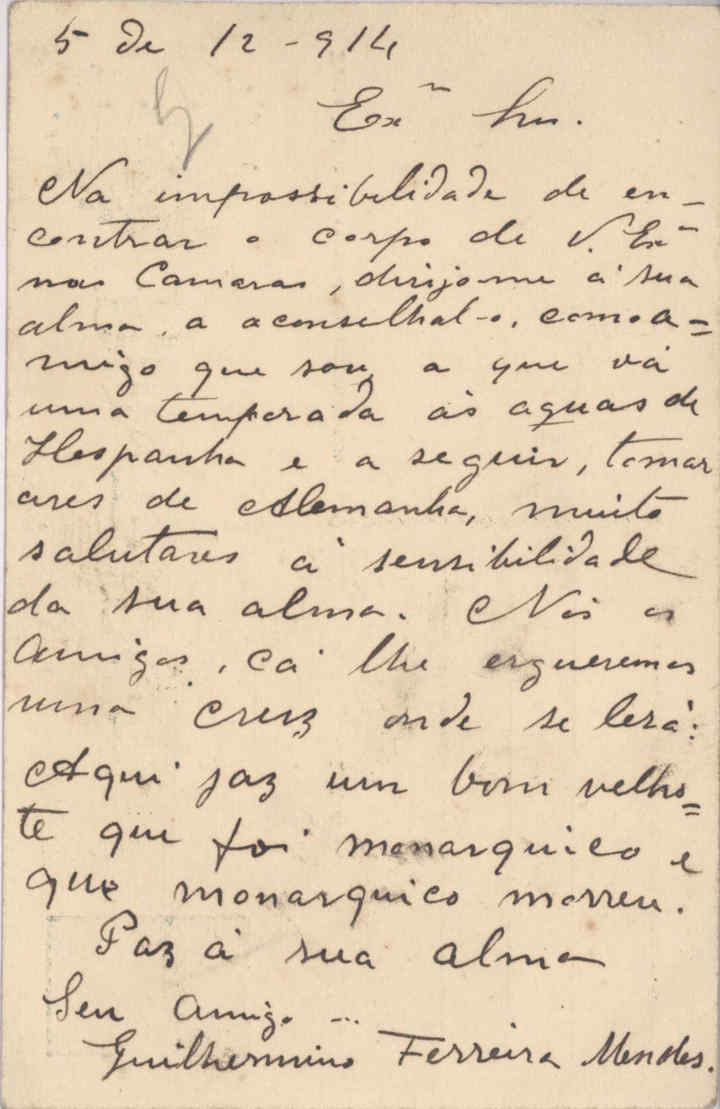 5 de 12-914
Exmo Snr.
Na impossibilidade de en-
contrar o corpo de V. Exa
nas Camaras, dirijo-me á sua
alma, a aconselhal-o, como a=
migo que sou, a que vá
uma temporada ás aguas de
Hespanha e a seguir, tomar
ares de Alemanha, muito
salutares á sensibilidade
da sua alma. Nós os
amigos, cá lhe ergueremos
uma cruz onde se lerá:
Aqui jaz um bom velho=
te que foi monarquico e
que monarquico morreu.
Paz á sua alma
Seu amigo ...
Guilhermino Ferreira Mendes.